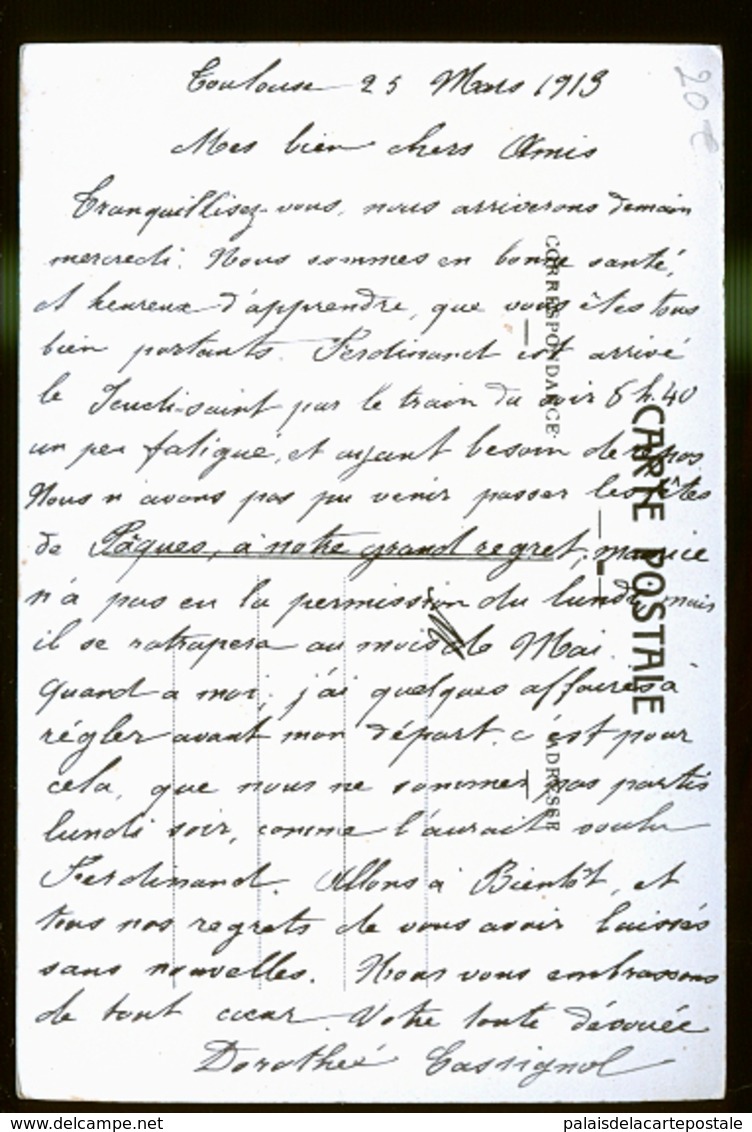 Toulouse 25 Mars 1913
20 €
Mes bien chers Amis
Tranquillisez-vous, nous arriverons demain
mercredi. Nous sommes en bonne santé,
et heureux d'apprendre, que vous êtes tous
bien portants. Ferdinand est arrivé
le Jeudi-saint par le train du soir 6 h. 40
un peu fatigué, et ayant besoin de repos
Nous n'avons pas pu venir passer les fêtes
de Pâques, à notre grand regret, maurice
n'a pas eu la permission du lundi, mais
il se ratrapera au mois de Mai.
Quand a moi, j'ai quelques affaires à
régler avant mon départ. c'est pour
cela, que nous ne sommes pas partis
lundi soir, comme l'aurait voulu
Ferdinand. Allons à Bientôt, et
tous nos regrets de vous avoir laissés
sans nouvelles. Nous vous embrassons
de tout cœur. Votre toute dévouée
Dorothée Cassignol
CARTE POSTALE
CORRESPONDANCE
ADRESSE
www.delcampe.net
palaisdelacartepostale